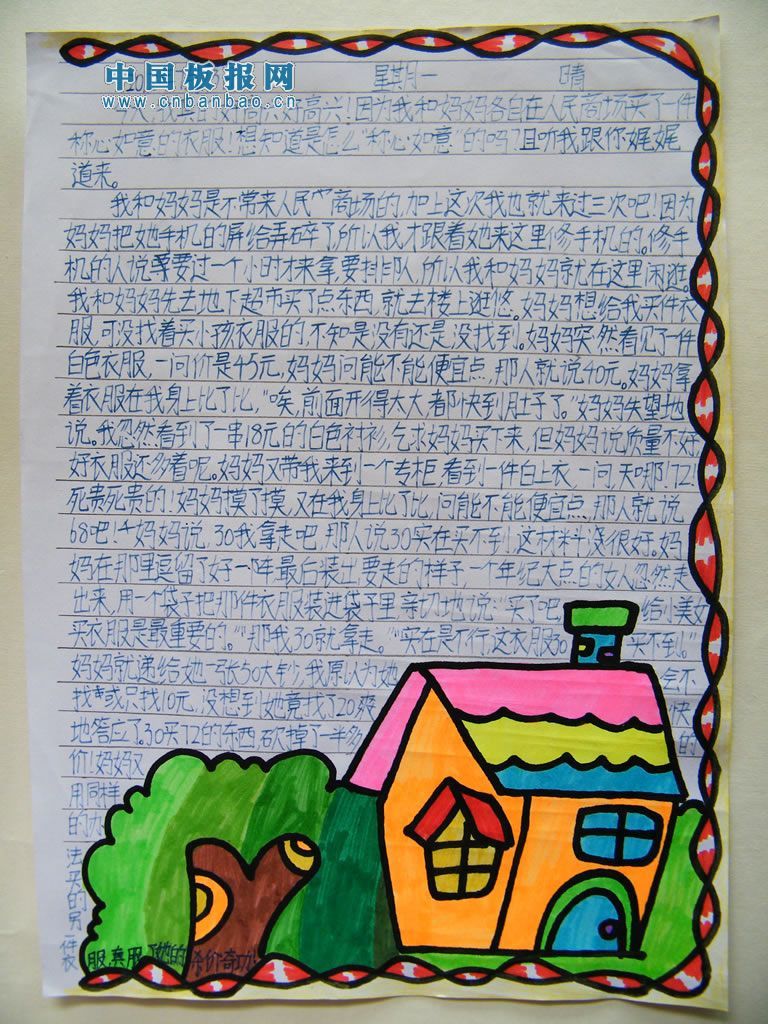 中国板报网
www.cnbanbao.cn
20 星期一 晴
好高兴!因为我和妈妈各自在人民商场买了一件
称心如意的衣服!想知道是怎么“称心如意”的吗?且听我跟你娓娓
道来。
我和妈妈是不常来人民商场的,加上这次我也就来过三次吧!因为
妈妈把她手机的屏给弄碎了,所以我才跟着她来这里修手机的。修手
机的人说要过一个小时才来拿,要排队,所以我和妈妈就在这里闲逛。
我和妈妈先去地下超市买了点东西,就去楼上逛悠。妈妈想给我买件衣
服,可没找着买小孩衣服的,不知是没有还是没找到。妈妈突然看见了一件
白色衣服,一问价是45元,妈妈问能不能便宜点,那人就说40元。妈妈拿
着衣服在我身上比了比,“唉,前面开得太大,都快到肚子了。”妈妈失望地
说。我忽然看到了一串18元的白色衬衫,乞求妈妈买下来,但妈妈说质量不好,
好衣服还多着呢。妈妈又带我来到一个专柜,看到一件白上衣,一问,天哪!72
死贵死贵的!妈妈摸了摸,又在我身上比了比,问能不能便宜点,那人就说
68吧!妈妈说,30我拿走吧,那人说30实在买不到,这材料很好。妈
妈在那里逗留了好一阵,最后装出要走的样子,一个年纪大点的女人忽然走
出来,用一个袋子把那件衣服装进袋子里,亲切地说:“买了吧, 给小美女
买衣服是最重要的。”“那我30就拿走。”“实在是不行,这衣服30 买不到。”
妈妈就递给她一张50大钞,我原认为她 会不
找或只找10元,没想到她竟找了20,爽 快
地答应了。30买72的东西,砍掉了一半多 的
价!妈妈又
用同样
的办
法买的另一件衣
服,真服了她的杀价奇功!